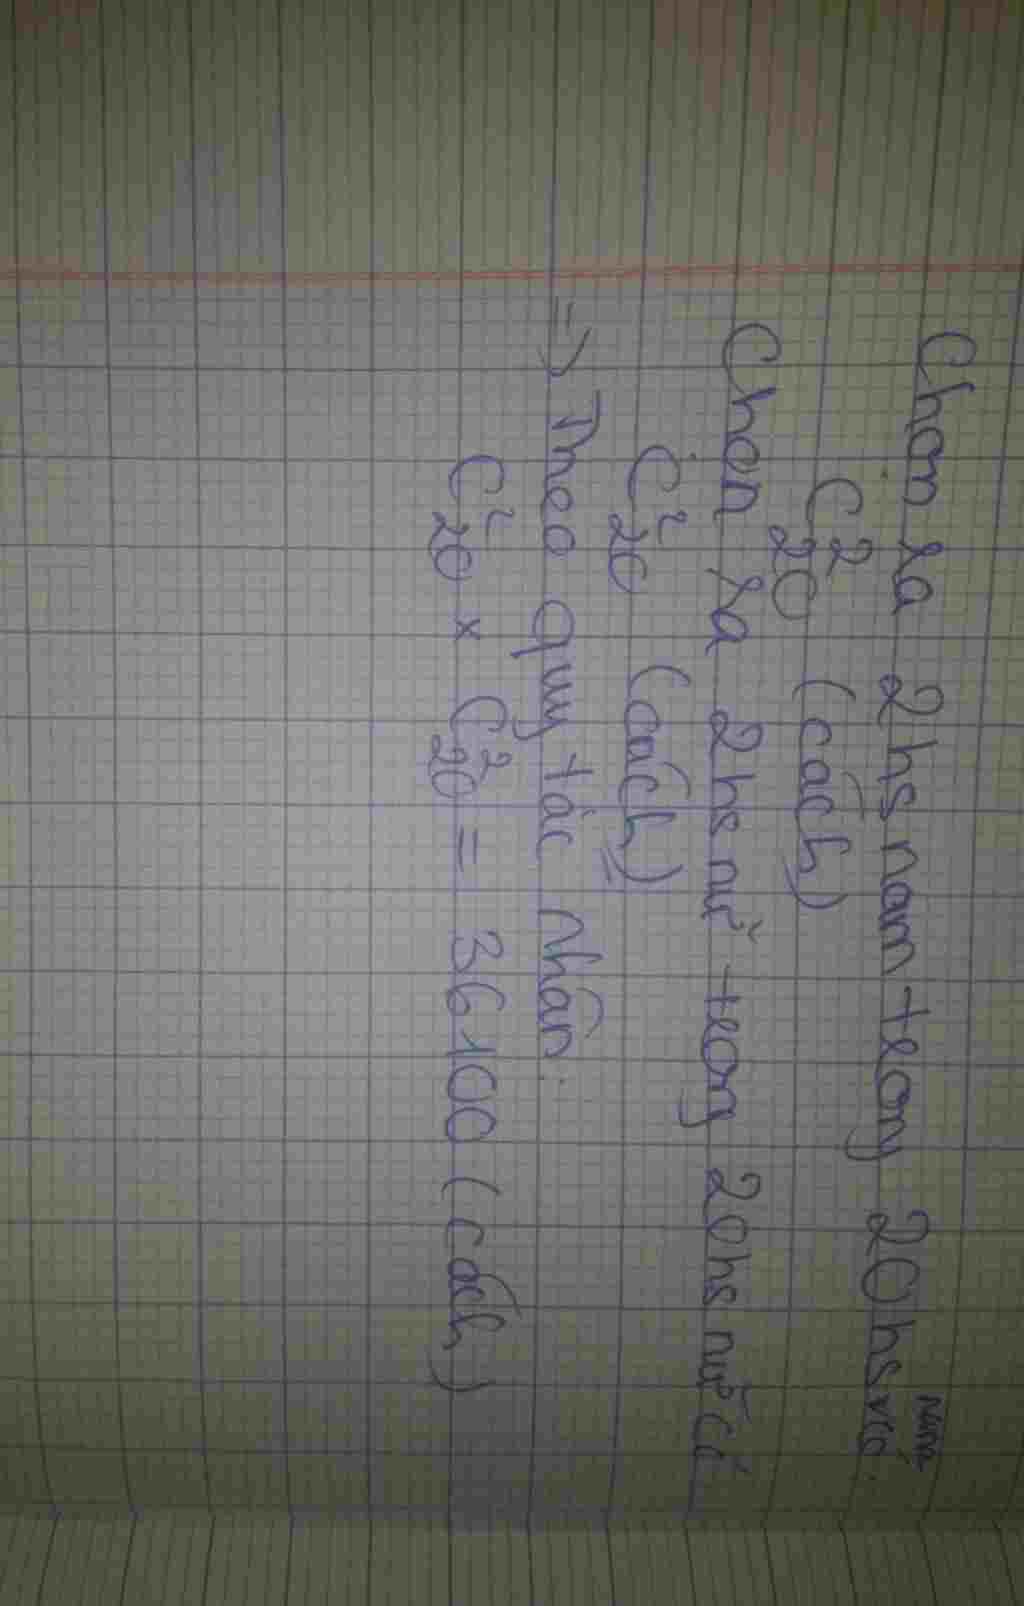 Chọn ra 2 hs nam trong 20 hs nam có.
C²₂₀ (cách)
Chọn ra 2 hs nữ trong 20 hs nữ có
C²₂₀ (cách)
=> Theo quy tắc nhân:
C²₂₀ x C²₂₀ = 36100 (cách)